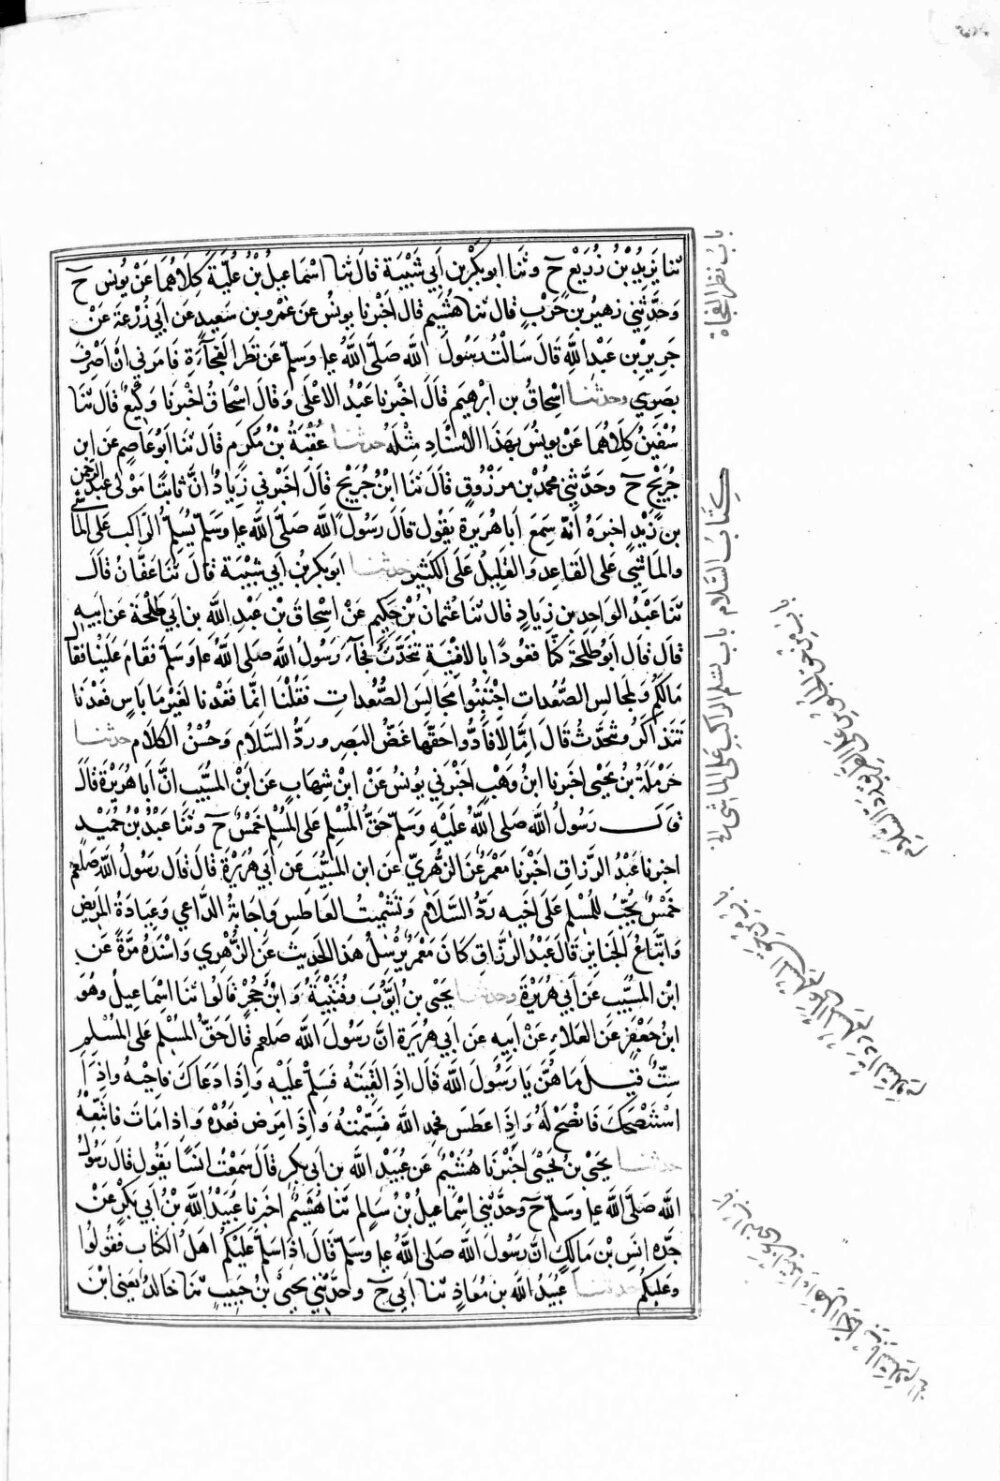 ثنا يزيد بن زريع ح وثنا ابو بكر بن ابي شيبة قال ثنا اسماعيل بن علية كلاهما عن يونس ح
وحدثني زهير بن حرب قال ثنا هشيم قال اخبرنا يونس عن عمرو بن سعيد عن ابي زرعة عن
جرير بن عبد الله قال سالت رسول الله صلى الله عليه وسلم عن نظر الفجآءة فامرني ان اصرف
بصري وحدثنا اسحاق بن ابرهيم قال اخبرنا عبد الاعلى وقال اسحاق اخبرنا وكيع قال ثنا
سفين كلاهما عن يونس بهذا الاسناد مثله حدثنا عقبة بن مكرم قال ثنا ابو عاصم عن ابن
جريج ح وحدثني محمد بن مرزوق قال ثنا ابن جريج قال اخبرني زياد ان ثابتا مولى عبد الرحمن
بن زيد اخبره انه سمع ابا هريرة يقول قال رسول الله صلى الله عليه وسلم يسلم الراكب على الماشي
والماشي على القاعد والقليل على الكثير حدثنا ابو بكر بن ابي شيبة قال ثنا عفان قال
ثنا عبد الواحد بن زياد قال ثنا عثمان بن حكيم عن اسحاق بن عبد الله بن ابي طلحة عن ابيه
قال قال ابو طلحة كنا قعودا بالافنية نتحدث فجآء رسول الله صلى الله عليه وسلم فقام علينا فقال
مالكم ولمجالس الصعدات اجتنبوا مجالس الصعدات فقلنا انما قعدنا لغير ما باس قعدنا
نتذاكر ونتحدث قال امّا لا فادوا حقها غض البصر ورد السلام وحسن الكلام حدثنا
حرملة بن يحيى اخبرنا ابن وهب اخبرني يونس عن ابن شهاب عن ابن المسيب ان ابا هريرة قال
قال رسول الله صلى الله عليه وسلم حق المسلم على المسلم خمس ح وثنا عبد بن حميد
اخبرنا عبد الرزاق اخبرنا معمر عن الزهري عن ابن المسيب عن ابي هريرة قال قال رسول الله صلعم
خمس يجب للمسلم على اخيه رد السلام وتشميت العاطس واجابة الداعي وعيادة المريض
واتباع الجنايز قال عبد الرزاق كان معمر يرسل هذا الحديث عن الزهري واسنده مرة عن
ابن المسيب عن ابي هريرة وحدثنا يحيى بن ايوب وقتيبة وابن حجر قالوا ثنا اسماعيل وهو
ابن جعفر عن العلاء عن ابيه عن ابي هريرة ان رسول الله صلعم قال حق المسلم على المسلم
ست قيل ما هن يا رسول الله قال اذا لقيته فسلم عليه واذا دعاك فاجبه واذا
استنصحك فانصح له واذا عطس فحمد الله فسمته واذا مرض فعده واذا مات فاتبعه
حدثنا يحيى بن يحيى اخبرنا هشيم عن عبيد الله بن ابي بكر قال سمعت انسا يقول قال رسول
الله صلى الله عليه وسلم ح وحدثني اسماعيل بن سالم ثنا هشيم اخبرنا عبيد الله بن ابي بكر عن
جده انس بن مالك ان رسول الله صلى الله عليه وسلم قال اذا سلم عليكم اهل الكتاب فقولوا
وعليكم حدثنا عبيد الله بن معاذ ثنا ابي ح وحدثني يحيى بن حبيب ثنا خالد يعني ابن
باب نظر الفجاة
كتاب السلام باب يسلم الراكب على الماشي